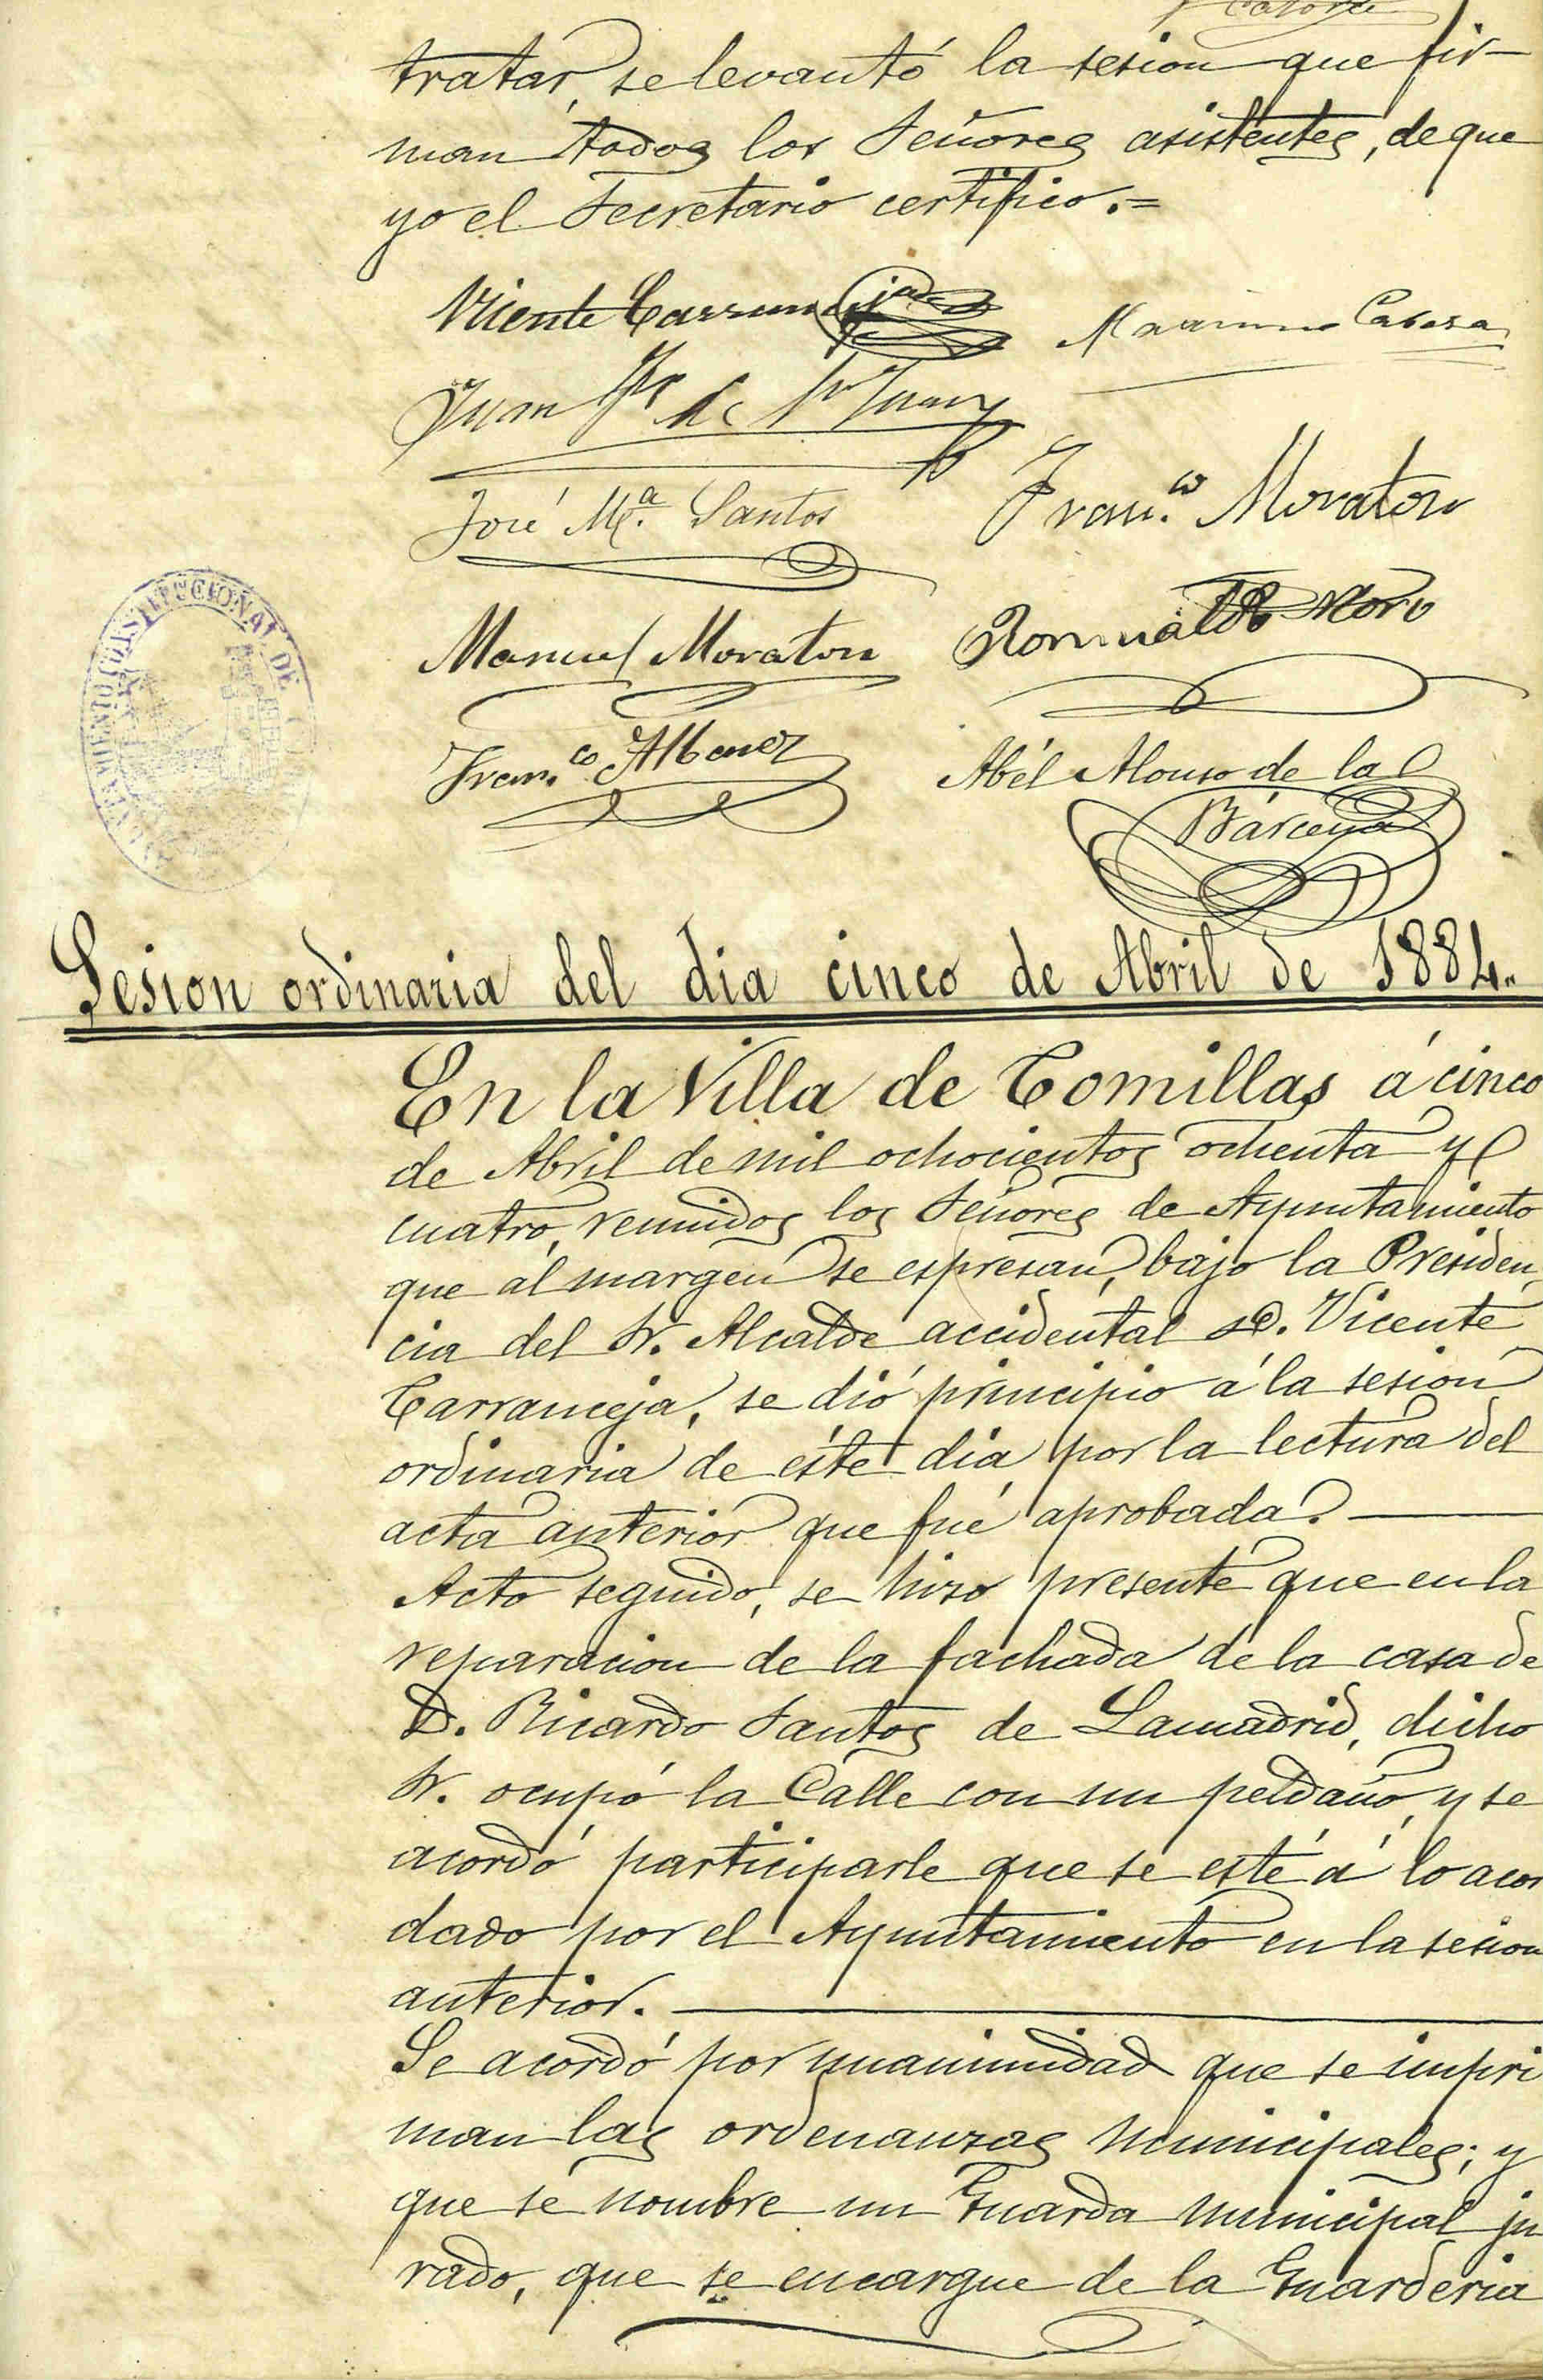 tratar, se levantó la sesion que fir-
man todos los Señores asistentes, de que
yo el Secretario certifico.=
Vicente Carranceja
Maximino Cabeza
Juan
José M.ª Santos
Fran.co Moraton
Manuel Moraton
Romualdo Moro
Fran.co
Abél Alonso de la
Bárcena
AYUNTAMIENTO CONSTITUCIONAL DE
Sesion ordinaria del dia cinco de Abril de 1884.
En la Villa de Comillas á cinco
de Abril de mil ochocientos ochenta y
cuatro, reunidos los Señores de Ayuntamiento
que al margen se espresan, bajo la Presiden
cia del Sr. Alcalde accidental D. Vicente
Carranceja, se dió principio á la sesion
ordinaria de éste dia por la lectura del
acta anterior que fué aprobada.
Acto seguido, se hizo presente que en la
reparacion de la fachada de la casa de
D. Ricardo Santos de Lamadrid, dicho
Sr. ocupó la Calle con un peldaño, y se
acordó participarle que se esté á lo acor
dado por el Ayuntamiento en la sesion
anterior.
Se acordó por unanimidad que se impri
man las ordenanzas municipales; y
que se nombre un Guarda municipal ju
rado, que se encargue de la Guarderia